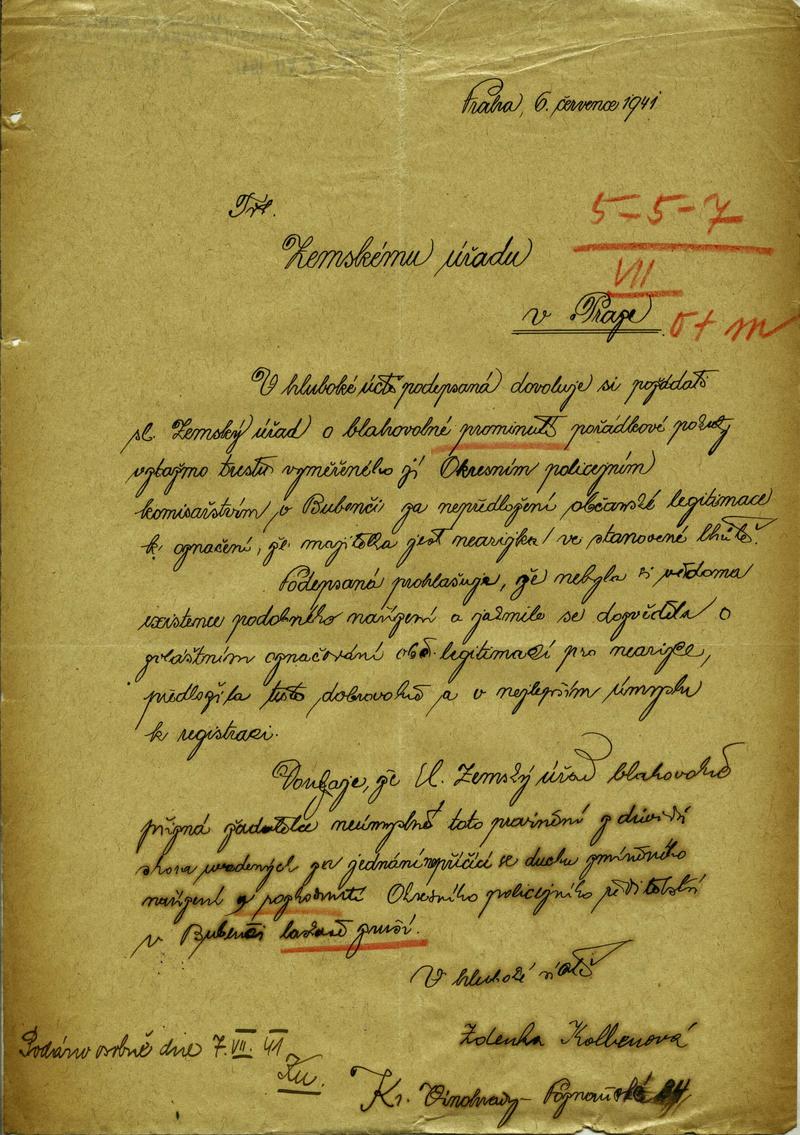 Praha, 6. července 1941
Třt.
5-5-7
Zemskému úřadu
VII
v Praze
o+m
V hluboké úctě podepsaná dovoluje si požádati
sl. Zemský úřad o blahovolné prominutí pořádkové pokuty
vztažmo trestu vyměřeného jí Okresním policejním
komisařstvím v Bubenči za nepředložení občanské legitimace
k označení, že majitelka jest nearijka/ ve stanovené lhůtě.
Podepsaná prohlašuje, že nebyla si vědoma
existence podobného nařízení a jakmile se dozvěděla o
zvláštním označování obč. legitimací pro nearijce,
předložila tuto dobrovolně a v nejlepším úmyslu
k registraci.
Doufaje, že Sl. Zemský úřad blahovolně
přizná žadatelce neúmyslně toto provinění z důvodů
shora uvedených za jednání nepříčící se duchu zmíněného
nařízení a rozhodnutí Okresního policejního ředitelství
v Bubenči laskavě zruší.
V hluboké úctě
Zdenka Kolbenová
Podáno osobně dne 7. VII. 41
Kr. Vinohrady - Poznaňská 24